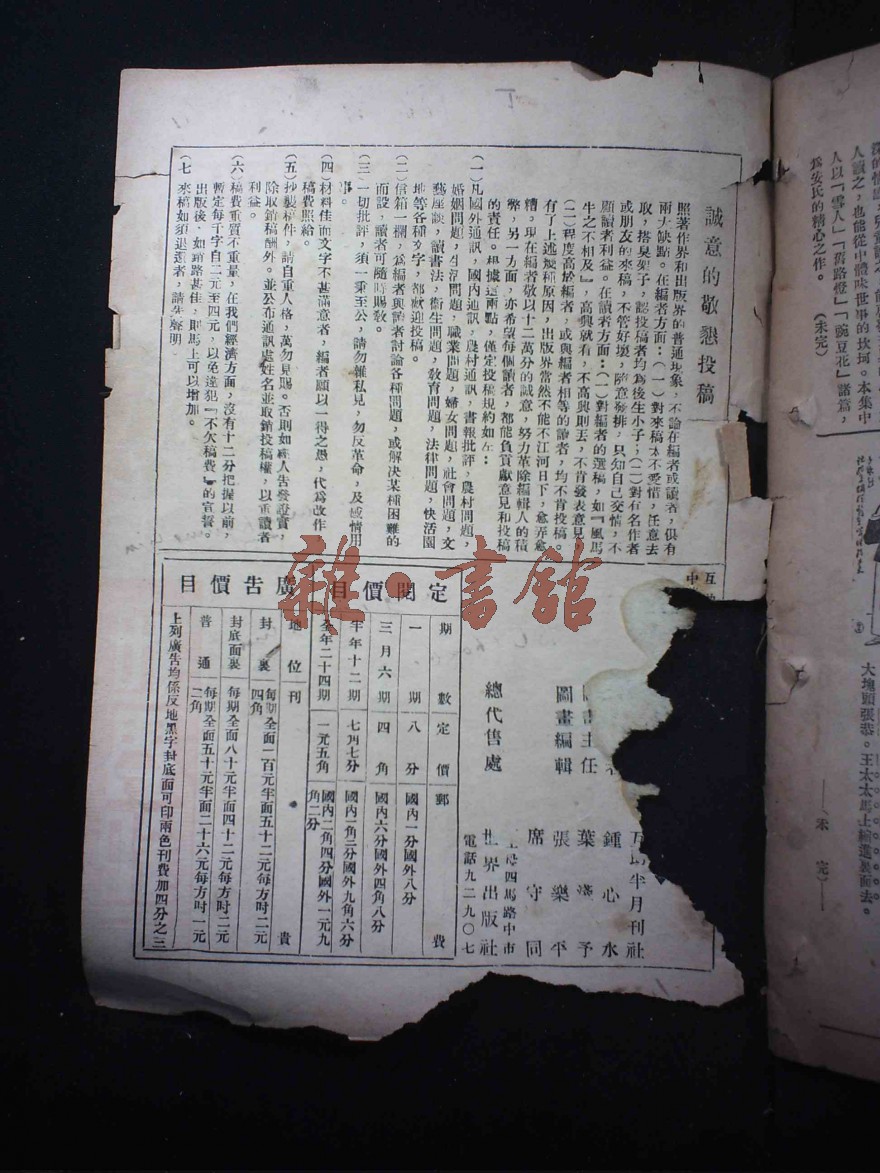 誠意的敬懇投稿
照著作界和出版界的普通現象，不論在編者或讀者，俱有
兩大缺點。在編者方面：（一）對來稿太不愛惜，任意去
取，搭臭架子，認投稿者均為後生小子；（二）對有名作者
或朋友的來稿，不管好壞，隨意發排，只知自己交情，不
顧讀者利益。在讀者方面：（一）對編者的選稿，如『風馬
牛之不相及』，高興就有，不高興則丟，不肯發表意見
（二）程度高於編者，或與編者相等的讀者，均不肯投稿。
有了上述幾種原因，出版界當然不能不江河日下，愈弄愈
糟。現在編者敬以十二萬分的誠意，努力革除編輯人的積
弊，另一方面，亦希望每個讀者，都能負貢獻意見和投稿
的責任。根據這兩點，僅定投稿規約如左：
（一）凡國外通訊，國內通訊，農村通訊，書報批評，農村問題，
婚姻問題，生活問題，職業問題，婦女問題，社會問題，文
藝座談，讀書法，衛生問題，教育問題，法律問題，快活園
地等各種文字，都歡迎投稿。
（二）信箱一欄，為編者與讀者討論各種問題，或解決某種困難的
而設，讀者可隨時賜教。
（三）一切批評，須一秉至公，請勿雜私見，勿反革命，及感情用
事。
（四）材料佳而文字不甚滿意者，編者願以一得之愚，代為改作
稿費照給。
（五）抄襲稿件，請自重人格，萬勿見賜。否則如經人告發證實，
除取銷稿酬外。並公布通訊處姓名並取銷投稿權，以重讀者
利益。
（六）稿費重質不重量，在我們經濟方面，沒有十二分把握以前，
暫定每千字自二元至四元，以免違犯『不欠稿費』的宣誓。
出版後，如銷路甚佳，則馬上可以增加。
（七）來稿如須退還者，請先聲明。
半月刊社
鍾心水
主任 葉淺予
圖畫編輯 張樂平
席守同
四馬路中市
總代售處 世界出版社
電話九二九〇七
定閱價目
期數 定價 郵費
一期 八分 國內一分國外八分
三月六期 四角 國內六分國外四角八分
半年十二期 七角七分 國內一角二分國外九角六分
全年二十四期 一元五角 國內二角四分國外一元九角二分
廣告價目
地位 刊費
封裏 每期全面一百元半面五十二元每方吋二元四角
封底面裏 每期全面八十元半面四十二元每方吋二元
普通 每期全面五十元半面二十六元每方吋一元二角
上列廣告均係反地黑字封底面可印兩色刊費加四分之三
人讀之，也能從中體味世事的坎坷。本集中
人以『雪人』『舊路燈』『豌豆花』諸篇，
為安民的精心之作。（未完）
大塊頭張恭。王太太馬上縮進裏面去。
——（未完）——
雜·書館